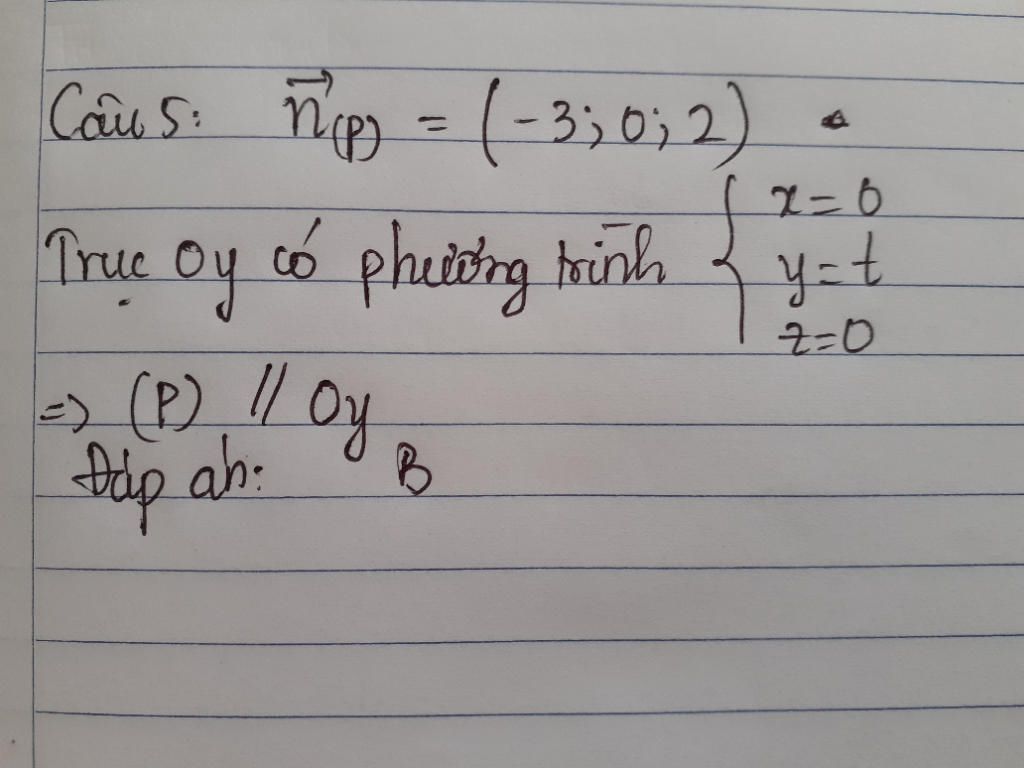 Câu 5: n⃗(P) = (-3; 0; 2)
Trục Oy có phương trình { x=0
y=t
z=0
=> (P) // Oy
Đáp án: B